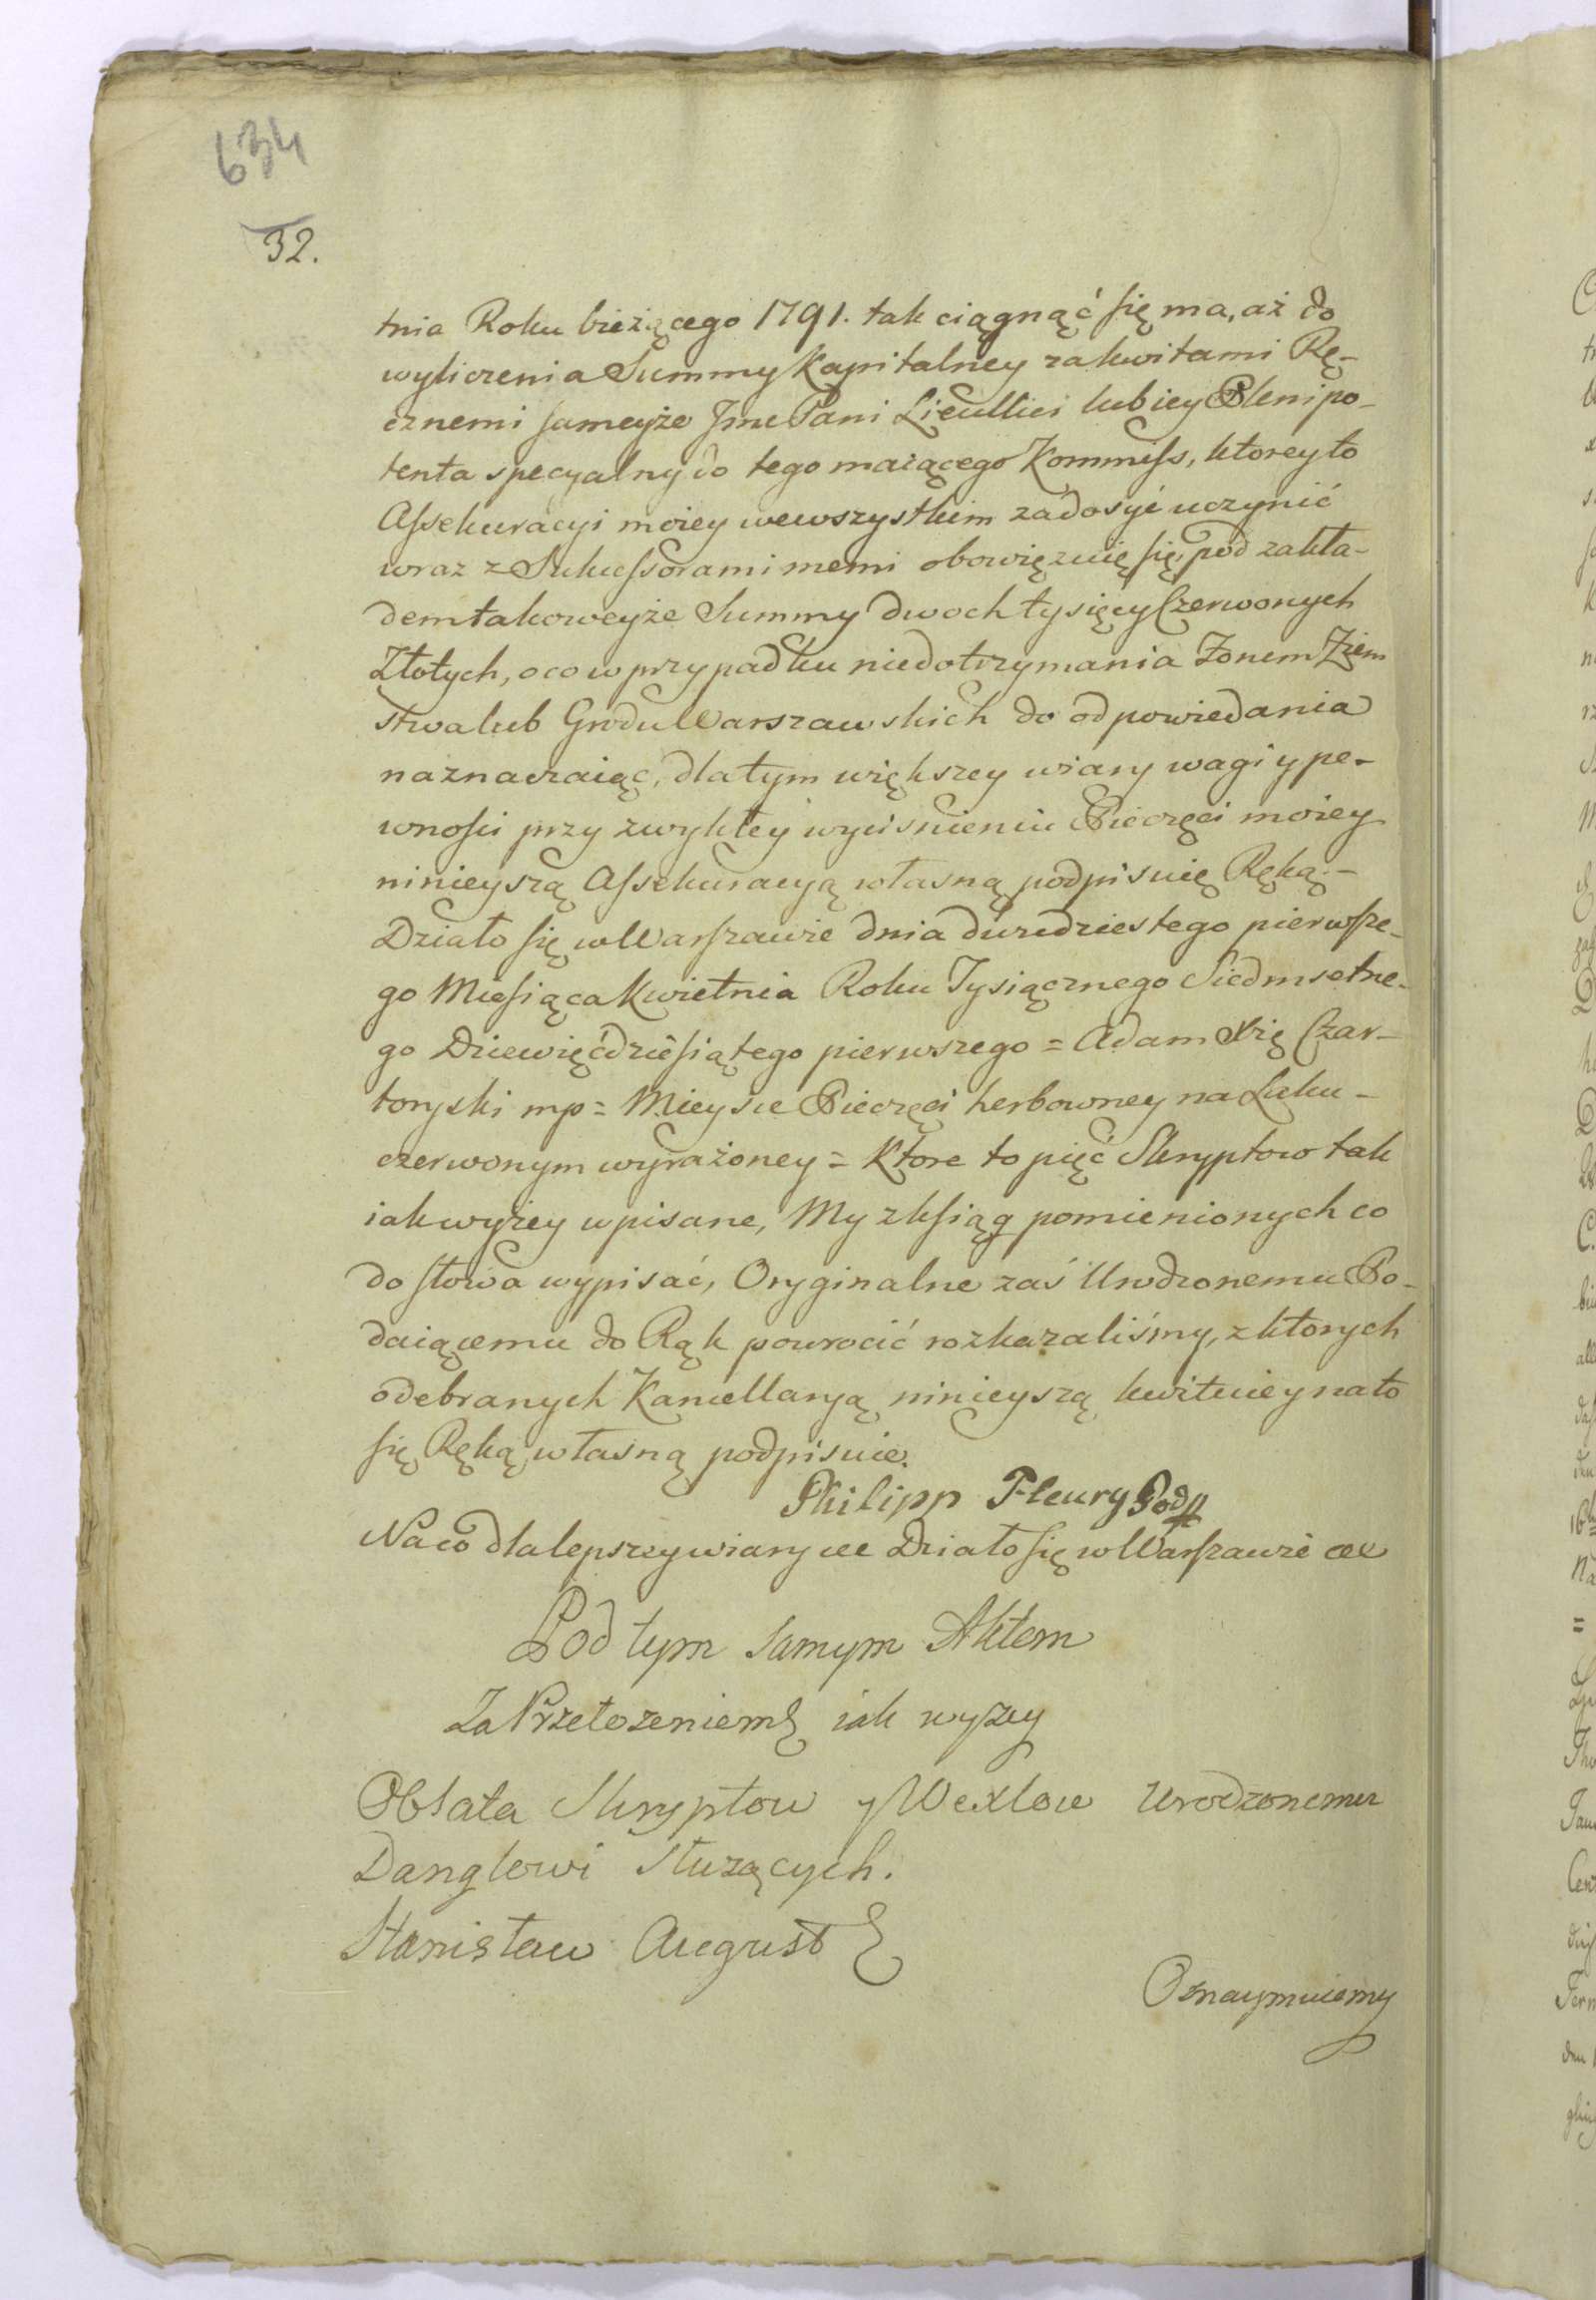 634
32.
tnia Roku bieżącego 1791. tak ciągnąć się ma, aż do
wyliczenia Summy Kapitalney za kwitami Rę-
cznemi sameyże Jme Pani Lieullier lub iey Plenipo-
tenta specyalny do tego maiącego Kommiss, ktorey to
Assekuracyi moiey we wszystkim zadosyć uczynić
wraz z Sukcessorami memi obowięzuię się pod zakła-
dem takoweyże Summy dwoch tysięcy Czerwonych
Złotych, o co w przypadku niedotrzymania Forum Ziem
stwa lub Grodu Warszawskich do odpowiedania
naznaczaiąc, dla tym większey wiary wagi y pe-
wności przy zwykłey wyciśnieniu Pieczęci moiey
ninieyszą Assekuracyą własną podpisuię Ręką.-
Działo się w Warszawie dnia dwudziestego pierwsze-
go Miesiąca Kwietnia Roku Tysiącznego Siedmsetne-
go Dziewięćdziesiątego pierwszego = Adam Xię Czar-
toryski mp = Mieysce Pieczęci herbowney na Laku-
czerwonym wyrażoney = Ktore to pięć Skryptow tak
iak wyżey wpisane, My z ksiąg pomienionych co
do słowa wypisać, Oryginalne zaś Urodzonemu Po-
daiącemu do Rąk powrocić rozkazaliśmy, z ktorych
odebranych Kancellaryą ninieyszą kwituie y na to
się Ręką własną podpisuie.
Philipp Fleury Podp
Na co dla lepszey wiary etc Działo się w Warszawie etc
Pod tym samym Aktem
Za Przełożeniem iak wyżey
Oblata Skryptow y Wexlow Urodzonemu
Danglowi służących.
Stanisław August
Oznaymuiemy